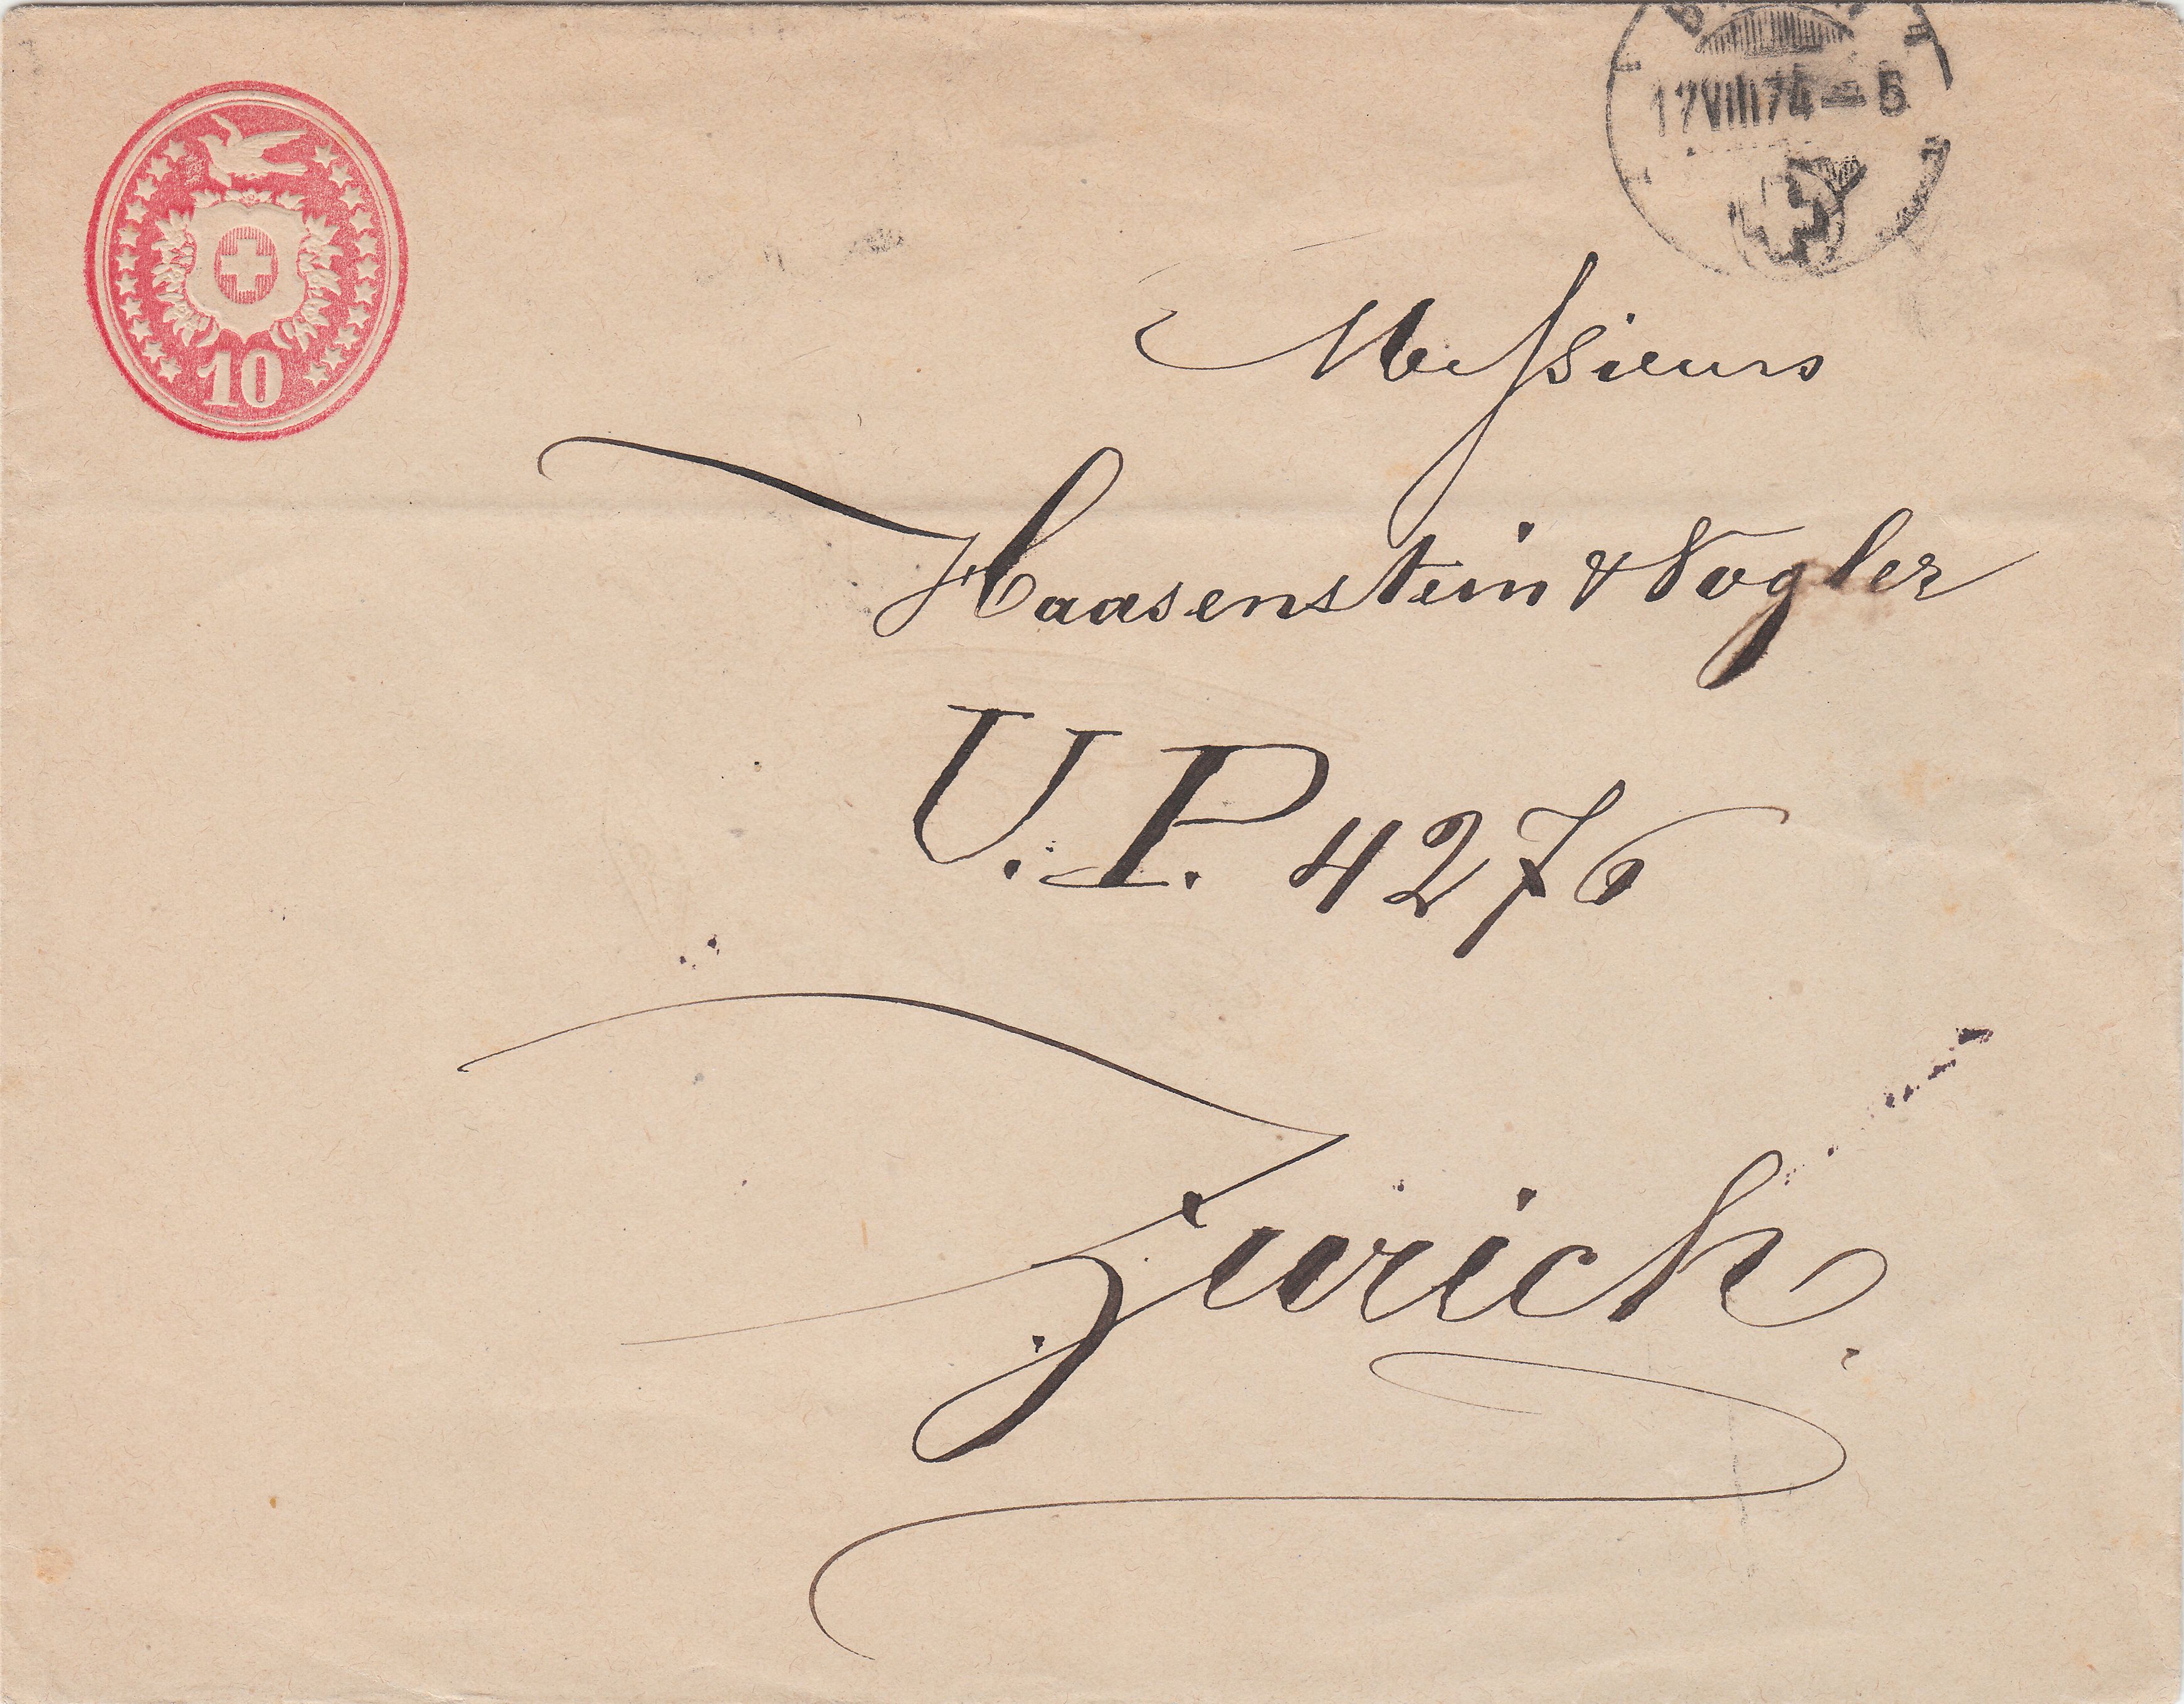 10
12 VIII 74 – 5
Messieurs
Haasenstein & Vogler
U.P. 4276
Zurich.